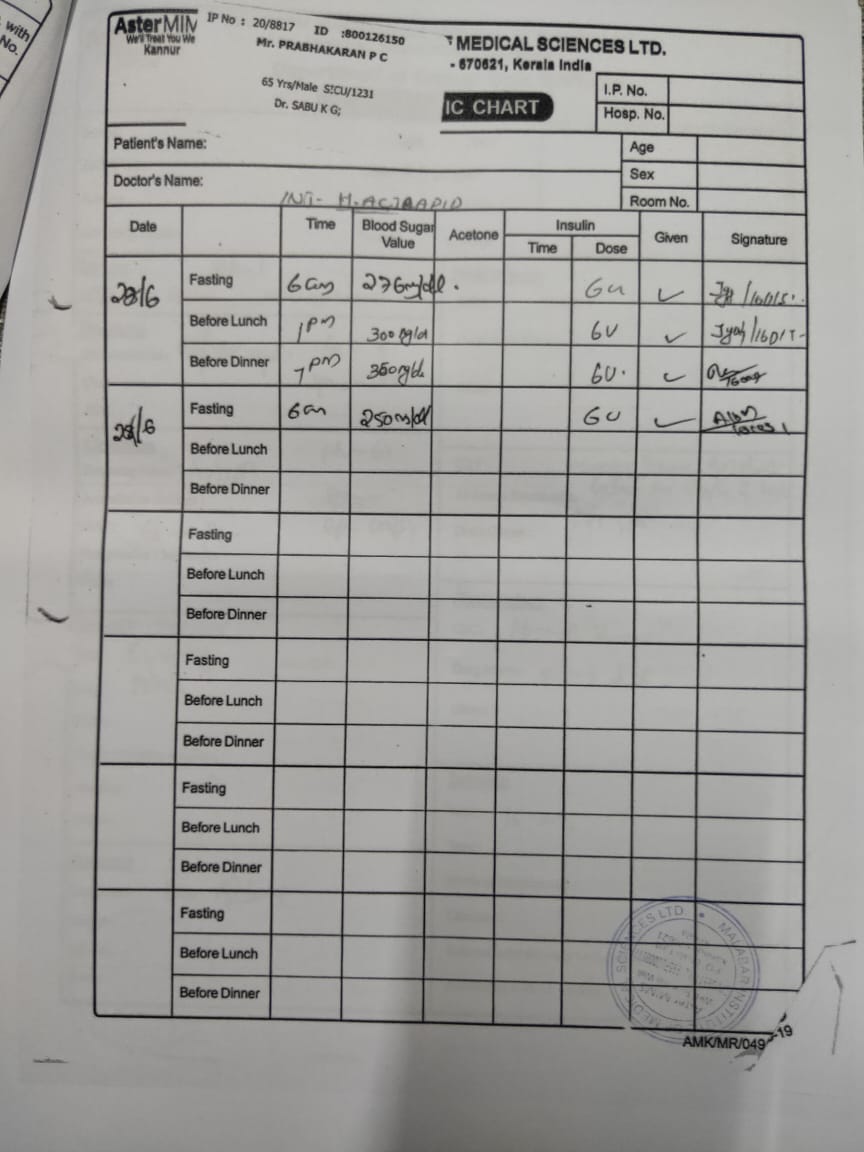 with
No.
AsterMIM
We'll Treat You We
Kannur
IP No : 20/8817 ID :800126150
Mr. PRABHAKARAN P C
65 Yrs/Male SICU/1231
Dr. SABU K G;
MEDICAL SCIENCES LTD.
- 670621, Kerala India
IC CHART
I.P. No.
Hosp. No.
Patient's Name:
Age
Doctor's Name:
Sex
Room No.
INJ- H. ACTRAPID
Date Time Blood Sugar Value Acetone Insulin Time Dose Given Signature
28/6 Fasting 6am 276mg/dl. 6u ✓
Before Lunch 1pm 300mg/dl 6U ✓
Before Dinner 7pm 350mg/dl 6U. ✓
Fasting 6am 250mg/dl 6U ✓
Before Lunch
Before Dinner
Fasting
Before Lunch
Before Dinner
Fasting
Before Lunch
Before Dinner
Fasting
Before Lunch
Before Dinner
Fasting
Before Lunch
Before Dinner
AMK/MR/049
-19